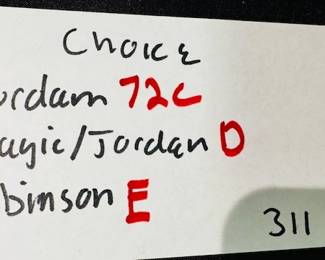 Choice
ordan 72C
agic/Jordan D
binson E
311